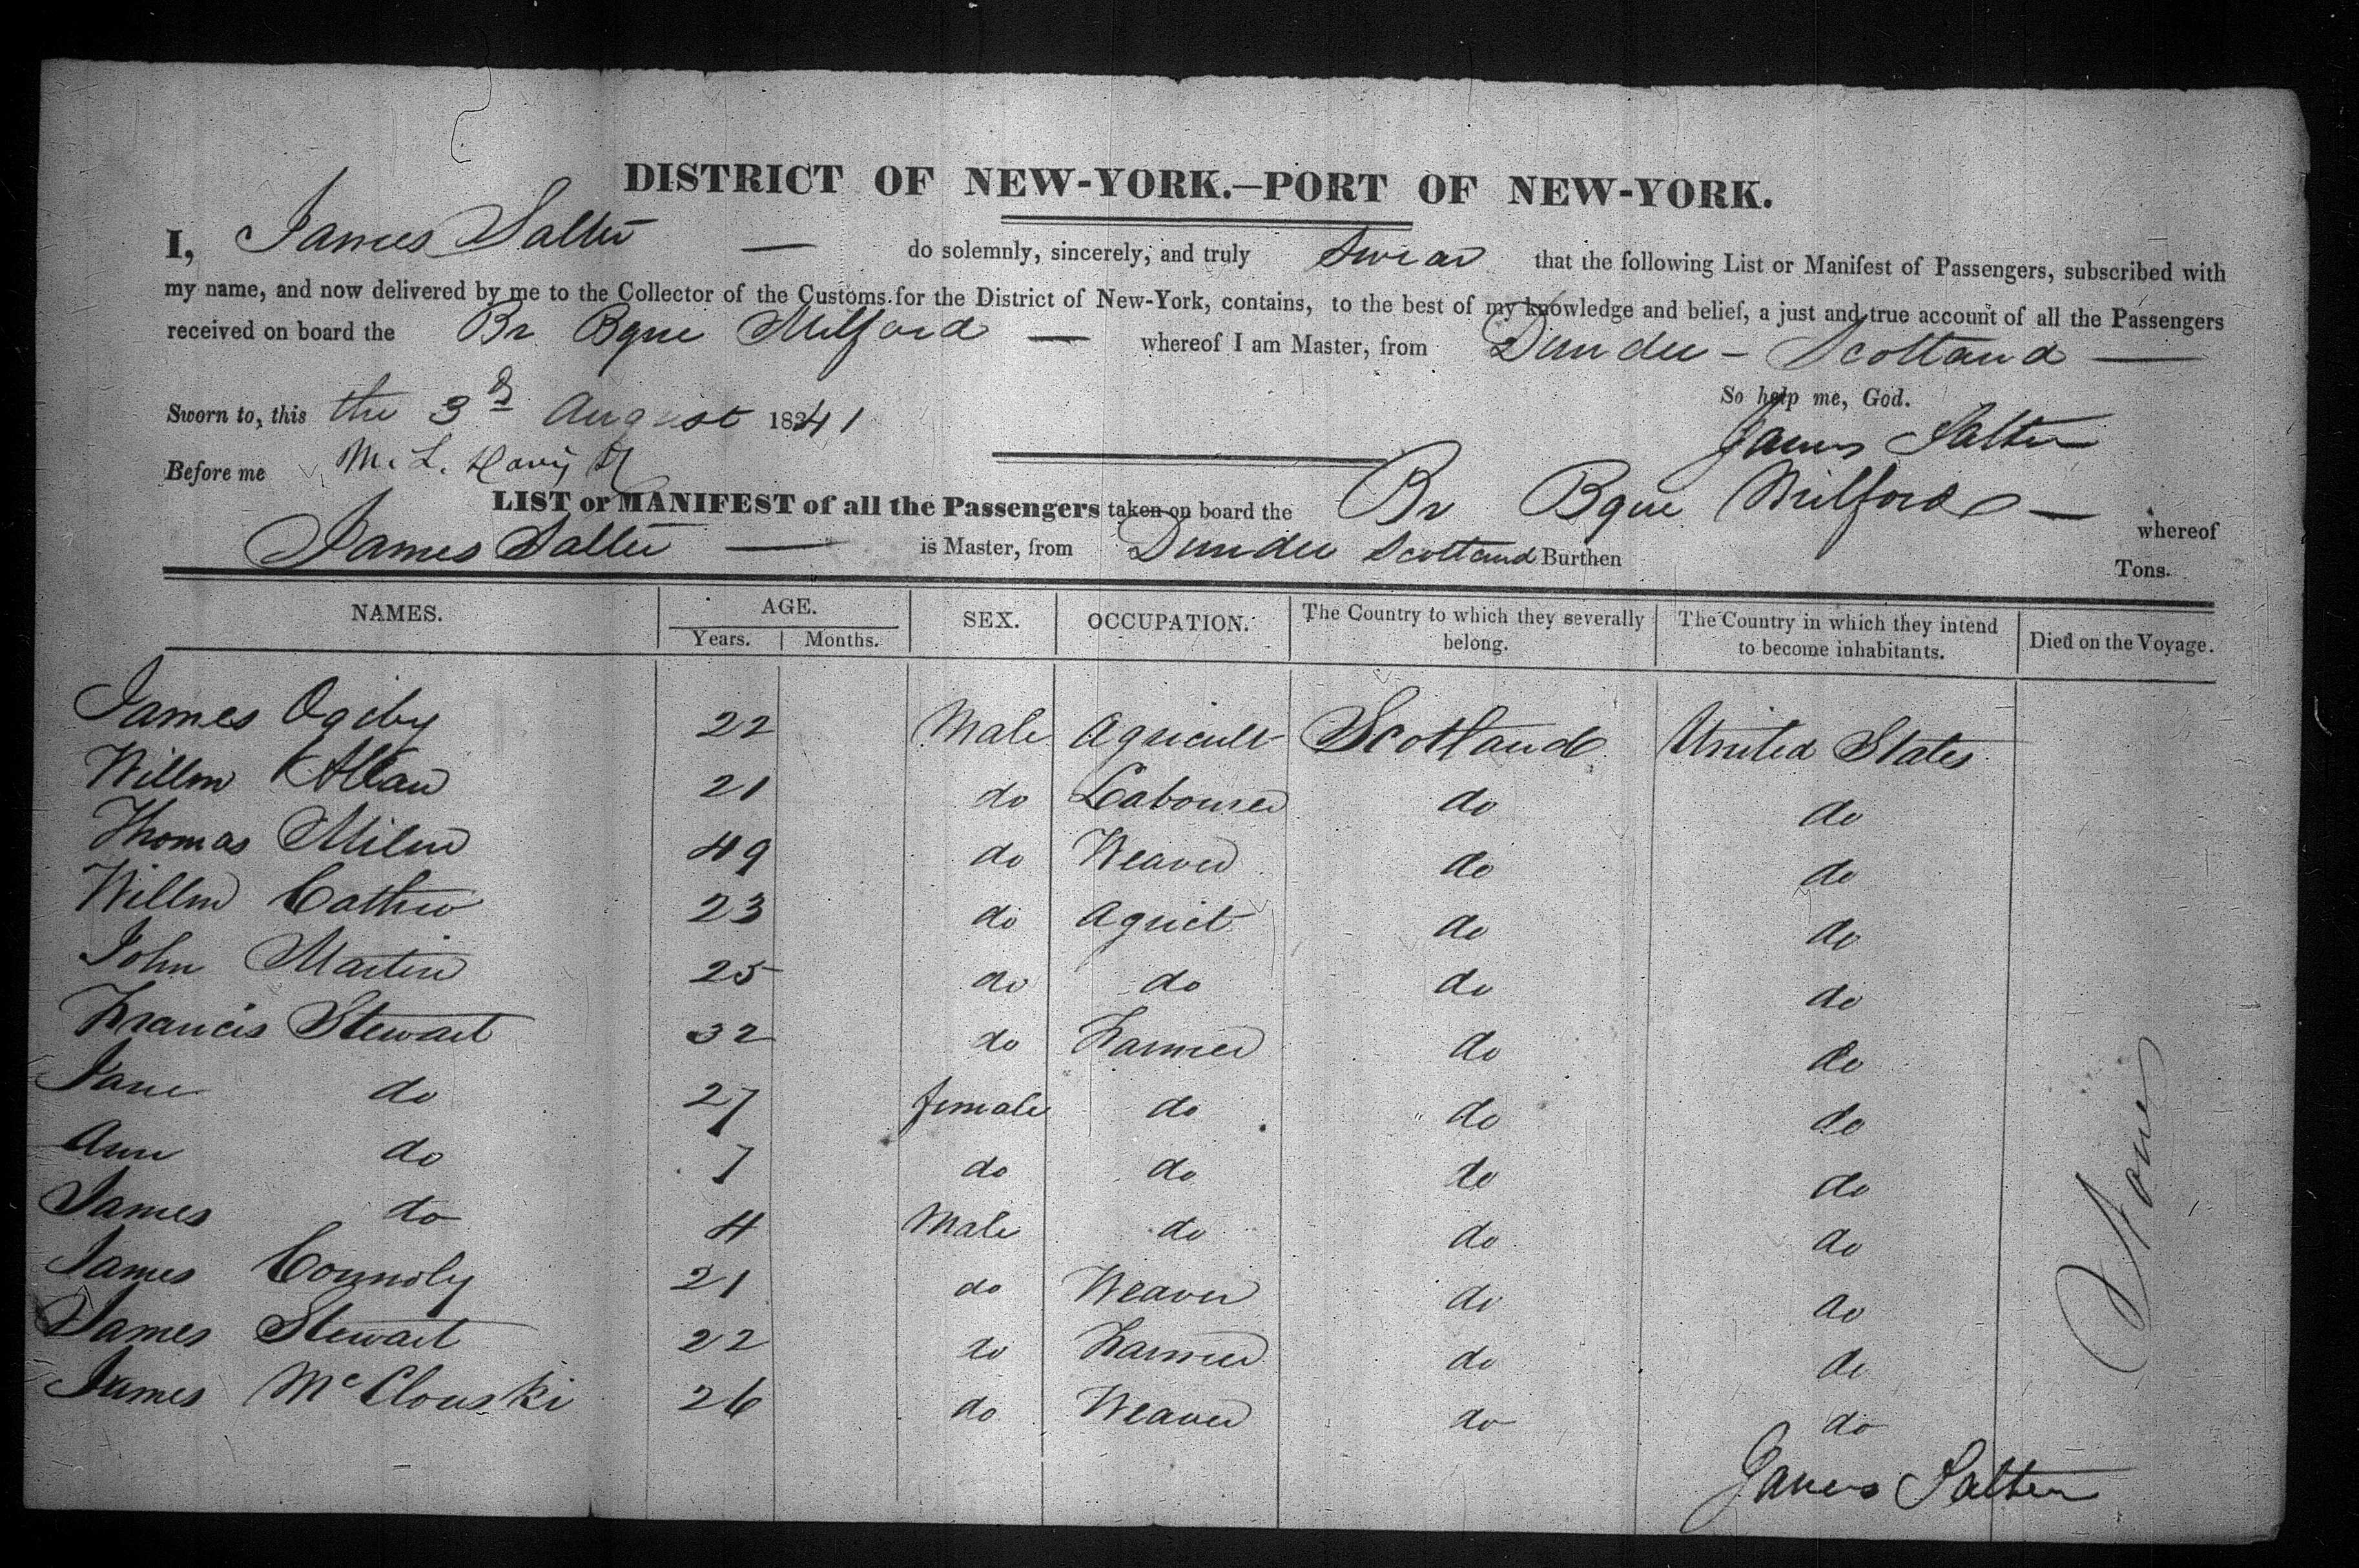 DISTRICT OF NEW-YORK.—PORT OF NEW-YORK.
I, James Salter — do solemnly, sincerely, and truly Swear that the following List or Manifest of Passengers, subscribed with
my name, and now delivered by me to the Collector of the Customs for the District of New-York, contains, to the best of my knowledge and belief, a just and true account of all the Passengers
received on board the Br Bque Milford — whereof I am Master, from Dundee - Scotland —
So help me, God.
Sworn to, this the 3d August 1841 James Salter
Before me M. L. Davis
LIST or MANIFEST of all the Passengers taken on board the Br Bque Milford — whereof
James Salter — is Master, from Dundee Scotland Burthen Tons.
NAMES. AGE. SEX. OCCUPATION. The Country to which they severally belong. The Country in which they intend to become inhabitants. Died on the Voyage.
Years. Months.
James Ogilby 22 Male Agricult Scotland United States
Willm Allan 21 do Labourer do do
Thomas Milne 49 do Weaver do do
Willm Cathro 23 do Agrict do do
John Martin 25 do do do do
Francis Stewart 32 do Farmer do do
Jane do 27 female do do do
Ann do 7 do do do do
James do 4 Male do do do
James Connoly 21 do Weaver do do
James Stewart 22 do Farmer do do
James McClouski 26 do Weaver do do
None
James Salter